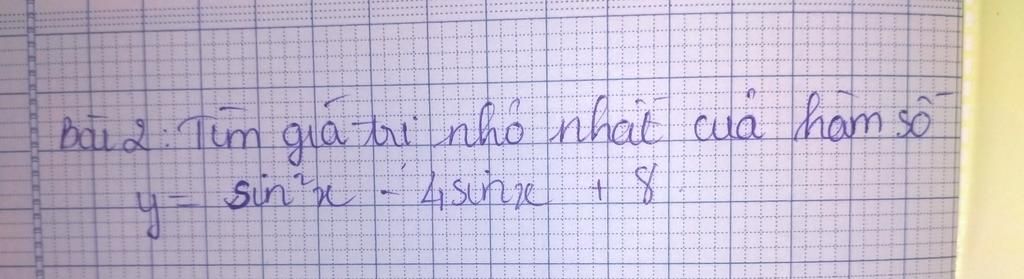 Bài 2: Tìm giá trị nhỏ nhất của hàm số
y = sin²x - 4sinx + 8